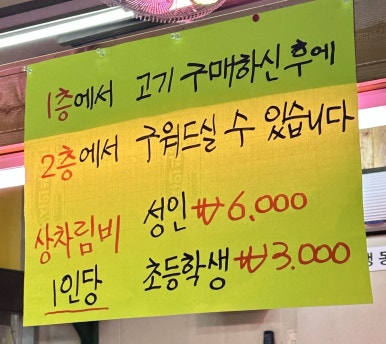 1층에서 고기 구매하신 후에
2층에서 구워드실 수 있습니다
상차림비 성인 ₩6.000
1인당 초등학생 ₩3.000